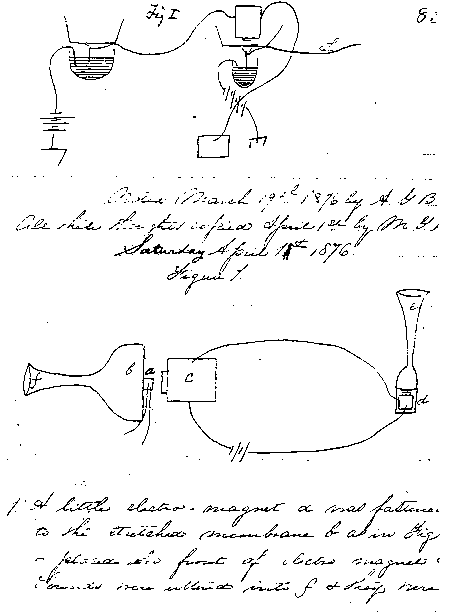 Fig 1
8
Notes March 19th 1876 by A. G. B.
copied April 1st by M. G.
Saturday April 1st 1876.
Figure 1.
b a c
e
f
d
1. A little electro-magnet a was fastened
to the stretched membrane b as in Fig
placed in front of electro magnet
Sounds were uttered into f & they were